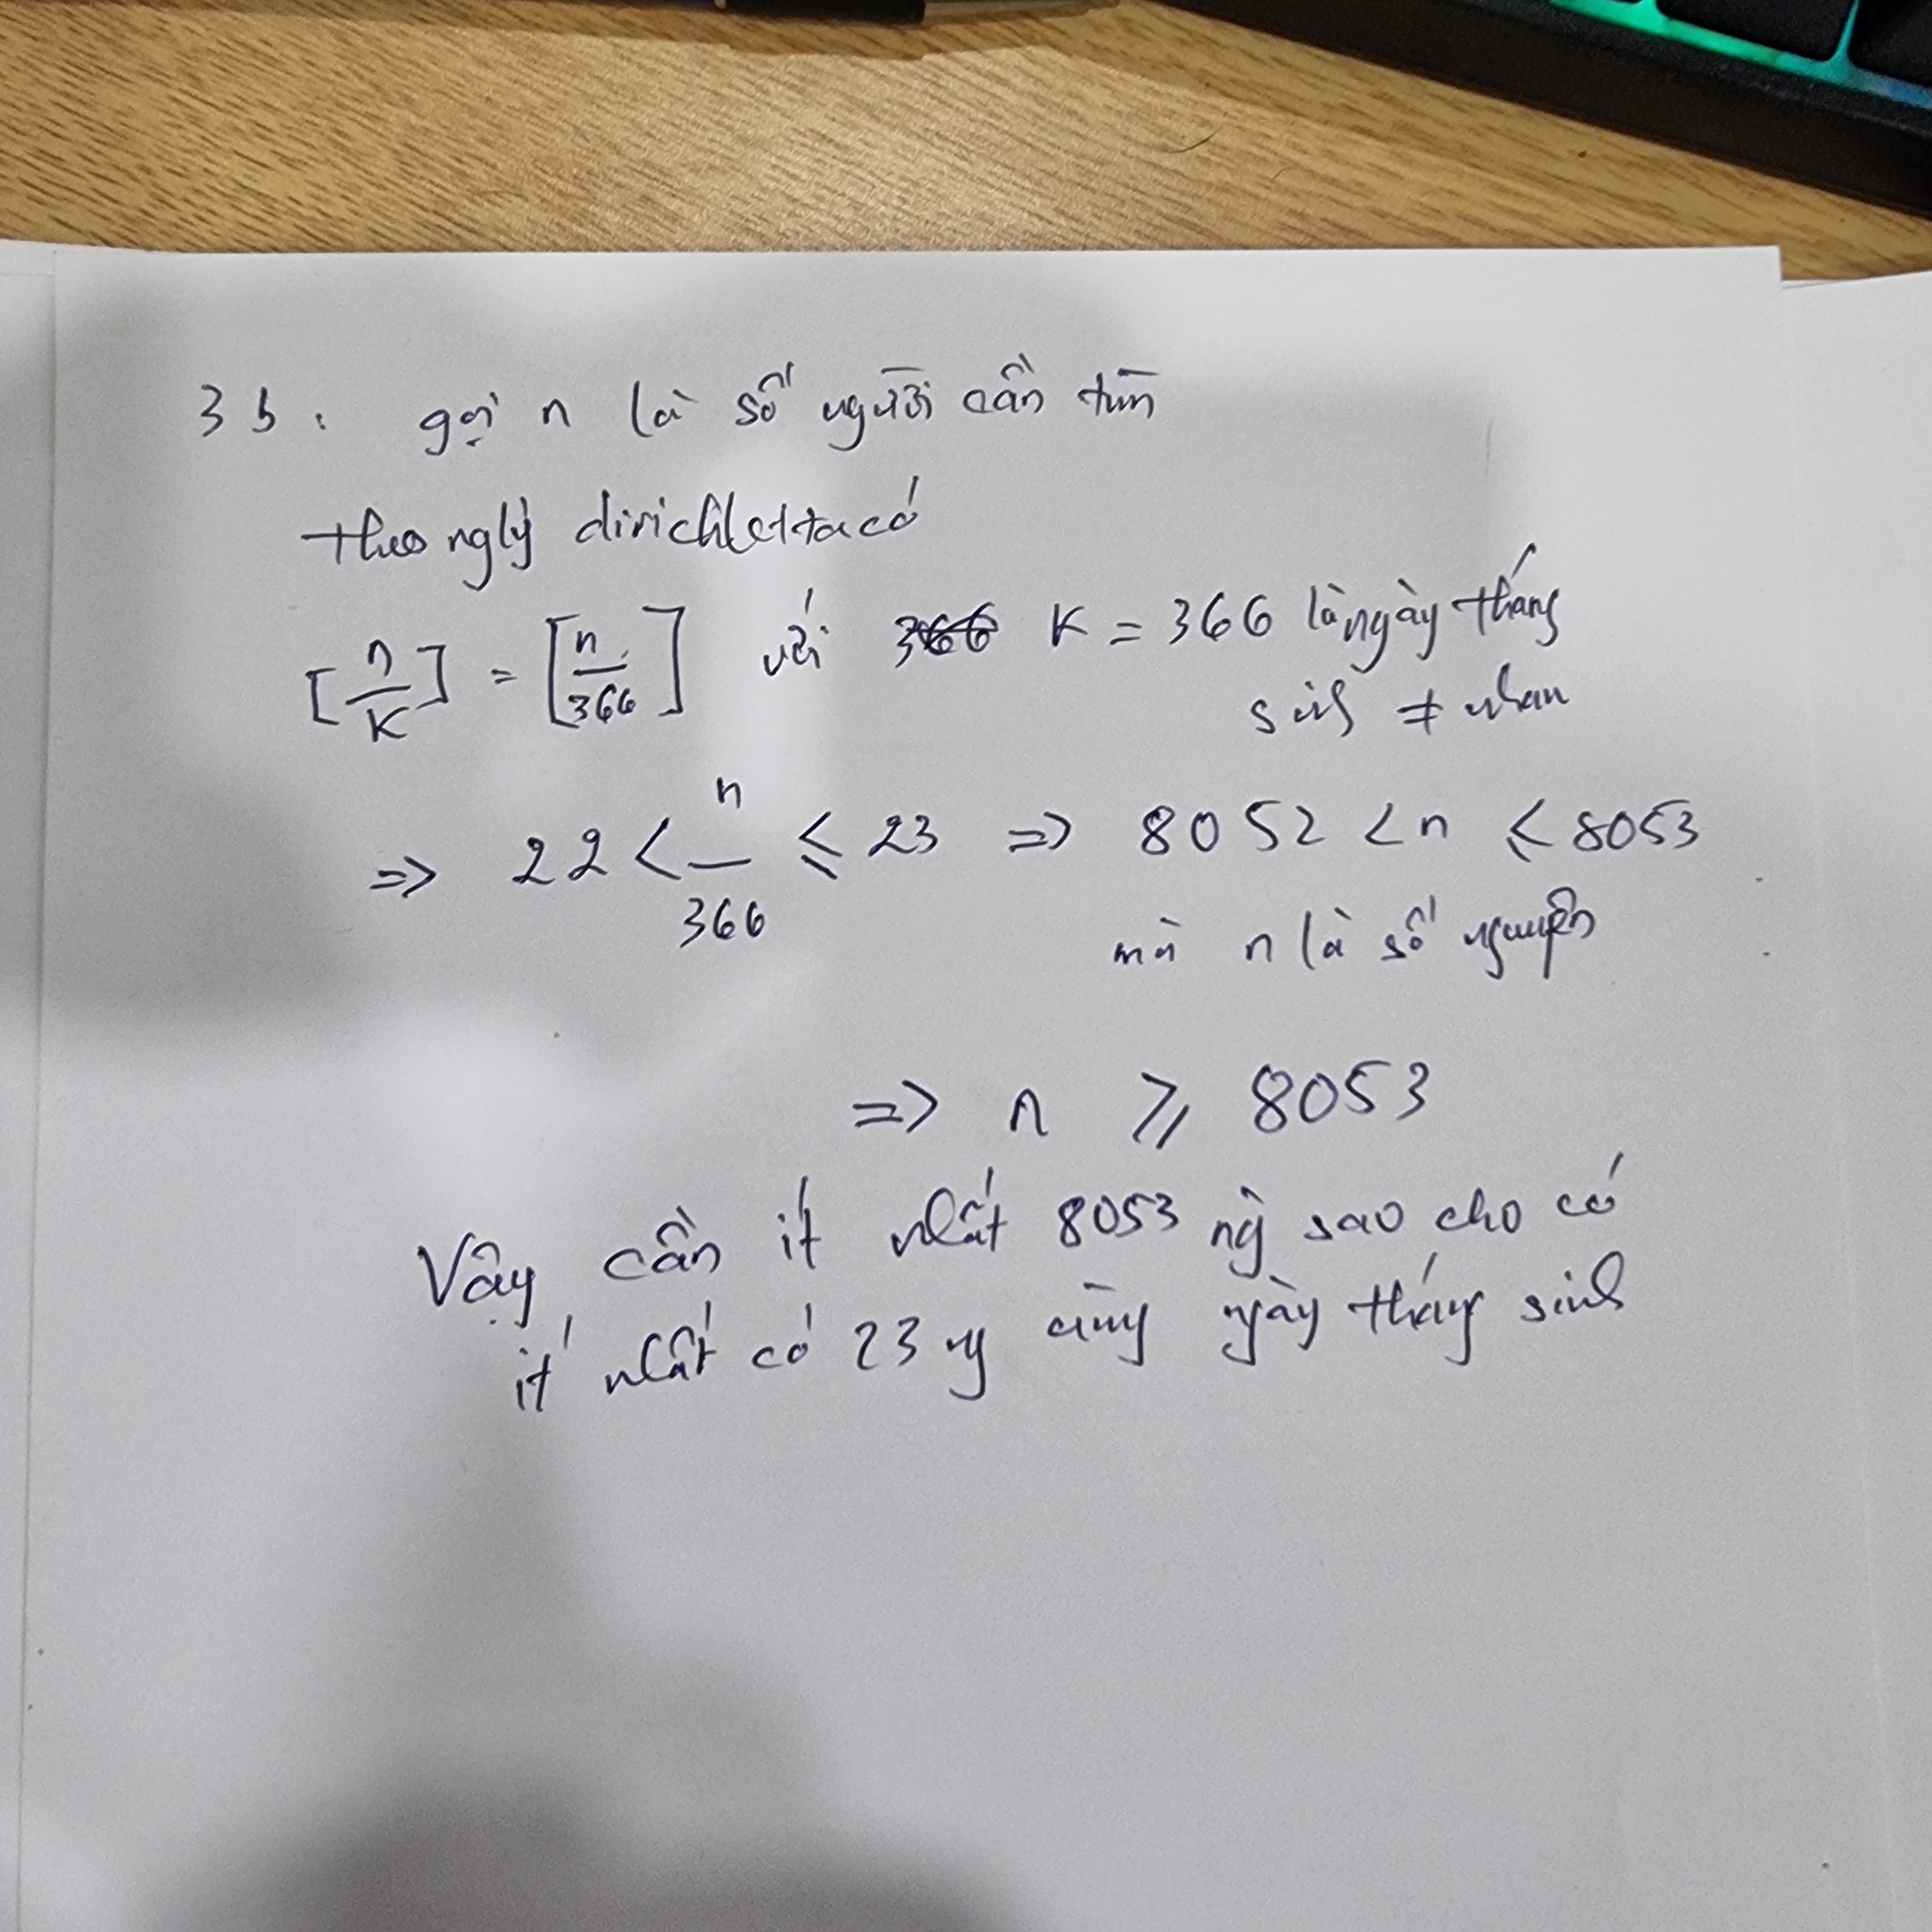 3b. gọi n là số người cần tìm
theo nglý dirichlet ta có
[n/K] = [n/366] với 366 K = 366 là ngày tháng
sinh ≠ nhau
=> 22 < n/366 ⩽ 23 => 8052 < n ⩽ 8053
mà n là số nguyên
=> n ⩾ 8053
Vậy cần ít nhất 8053 ng̀ sao cho có
ít nhất có 23 ng cùng ngày tháng sinh